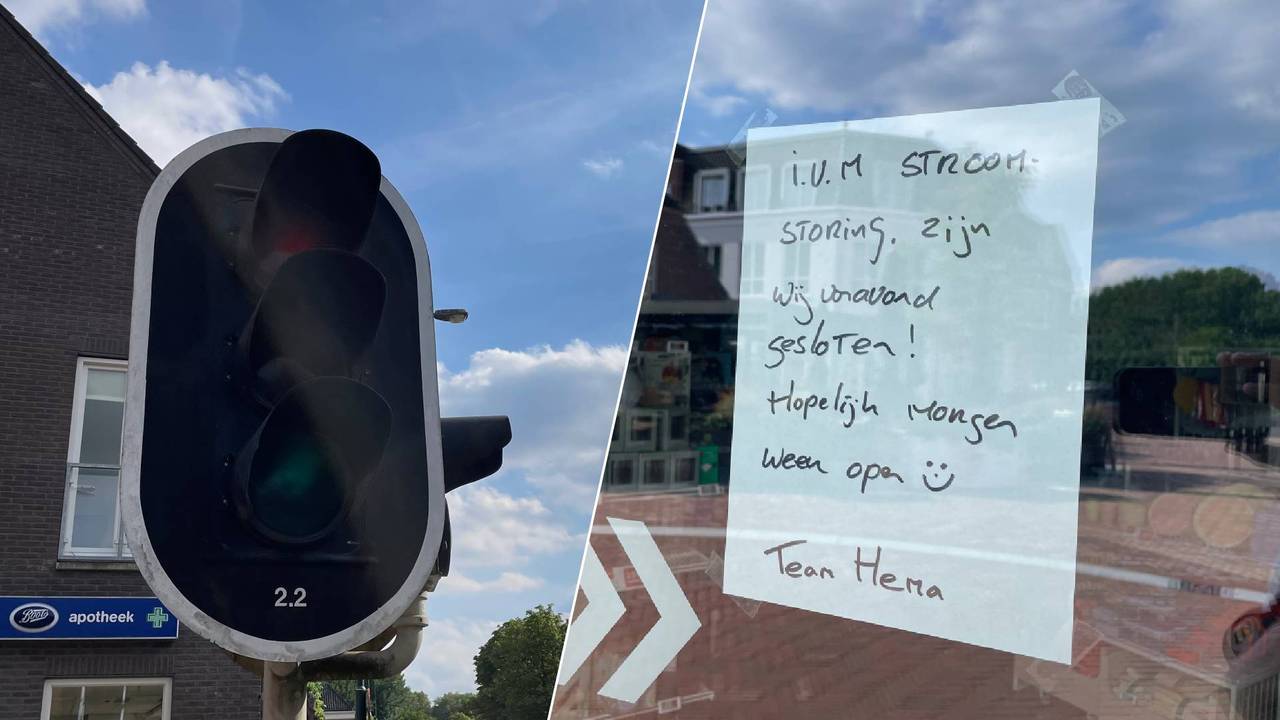 2.2
Boots apotheek
i.v.m STROOM-
STORING, zijn
wij vanavond
gesloten!
Hopelijk morgen
weer open
Team Hema